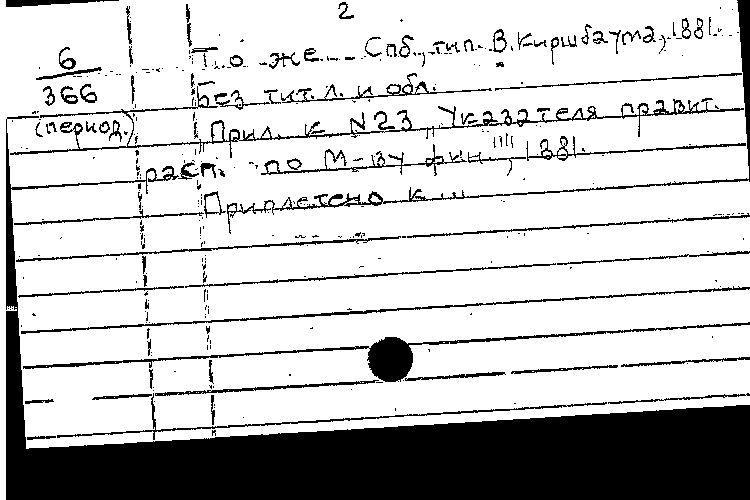 2
6
366
(период.)
То же. Спб., тип. В. Киршбаума, 1881.
Без тит. л. и обл.
"Прил. к №23 "Указателя правит.
расп. по М-ву фин."", 1881.
Приплетено к ...